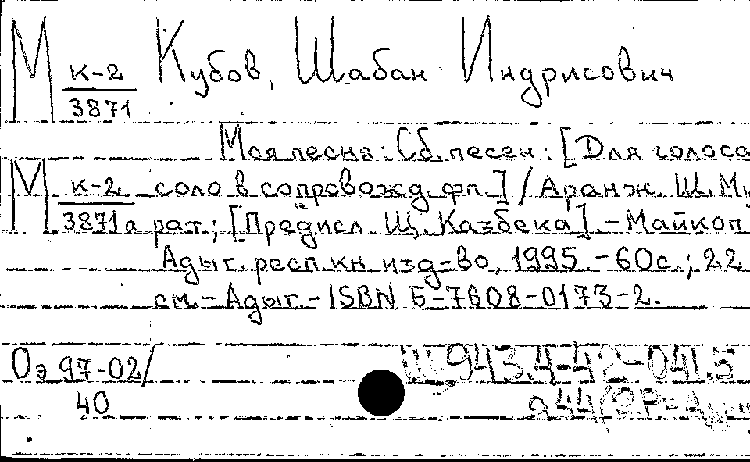 М к-2 Кубов, Шабан Индрисович
3871
Моя песня: Сб. песен: [Для голоса
М к-2 соло в сопровожд. фп.] / Аранж. Ш. М.
3871а рат; [Предисл. Щ. Казбека]. - Майкоп
Адыг. респ. кн. изд-во, 1995. - 60с.; 22
см. - Адыг. - ISBN 5-7608-0173-2.
Оэ 97-02/ Щ943.4-42-041.5
40 я44/